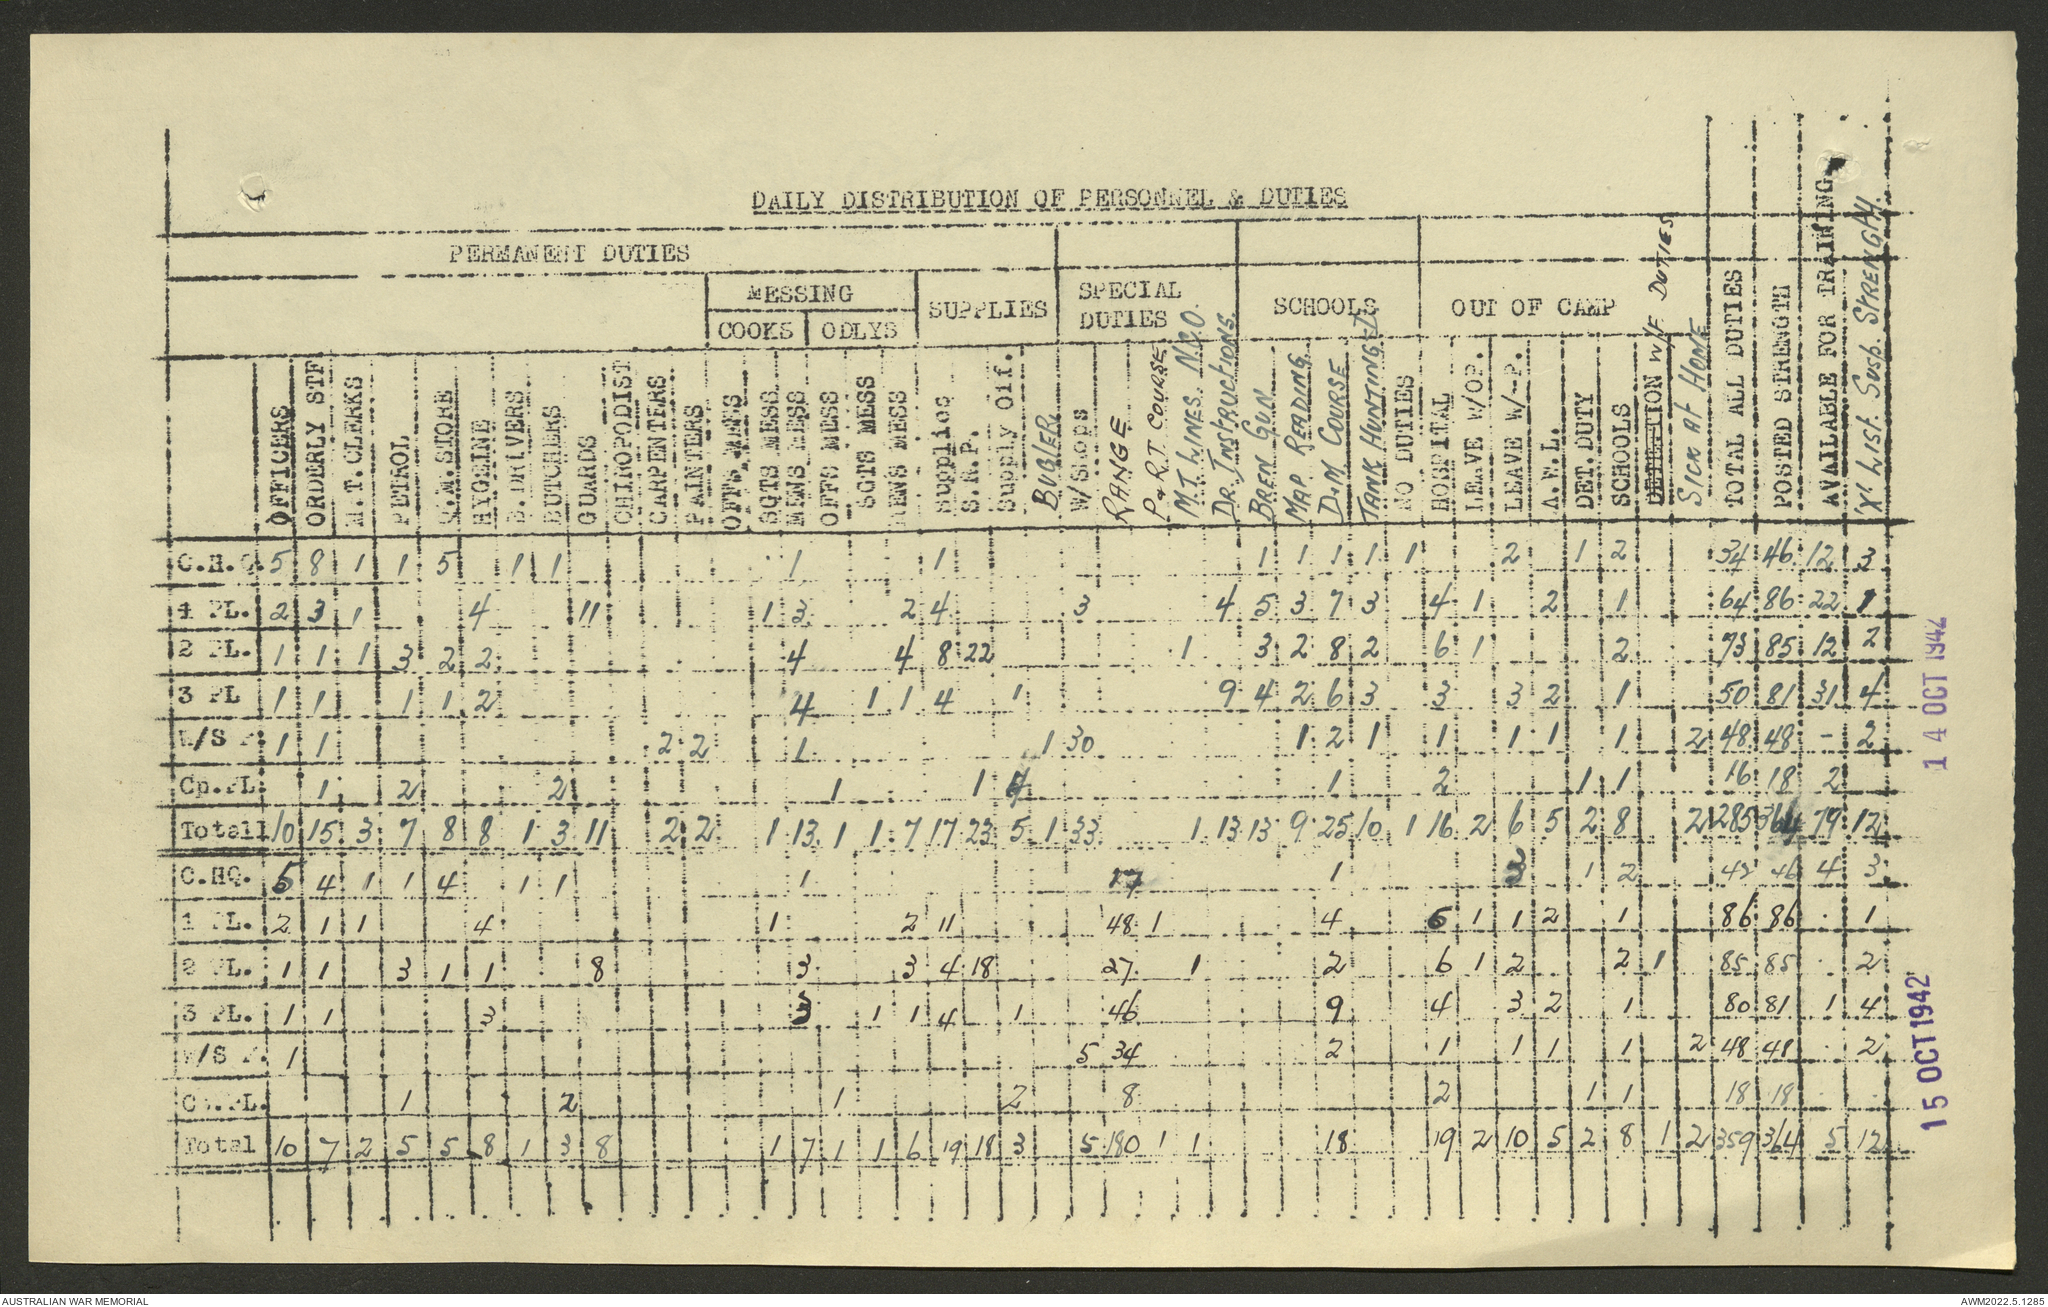 DAILY DISTRIBUTION OF PERSONNEL & DUTIES
PERMANENT DUTIES
MESSING
COOKS ODLYS
SUPPLIES
SPECIAL DUTIES
SCHOOLS
OUT OF CAMP
OFFICERS
ORDERLY STF
M.T.CLERKS
PETROL
Q.M.STORE
HYGEINE
B.DRIVERS
BUTCHERS
GUARDS
CHIROPODIST
CARPENTERS
PAINTERS
OFFS MESS
SGTS MESS
MENS MESS
OFFS MESS
SGTS MESS
MENS MESS
Supplies
S.R.P.
Supply Oif.
BUGLER
W/Shops
RANGE
P&RT COURSE
MT LINES. N.C.O.
DR. INSTRUCTIONS.
BREN GUN
MAP READING
D&M COURSE
TANK HUNTING
NO DUTIES
HOSPITAL
LEAVE W/OP.
LEAVE W/-P.
A.W.L.
DET.DUTY
SCHOOLS
DETENTION W/F DUTIES
SICK AT HOME
TOTAL ALL DUTIES
POSTED STRENGTH
AVAILABLE FOR TRAINING
'X' LIST. SUSP. STRENGTH.
C.H.Q 5 8 1 1 5 1 1 1 1 1 1 1 1 1 2 1 2 34 46 12 3
1 PL. 2 3 1 4 11 1 3 2 4 3 4 5 3 7 3 4 1 2 1 64 86 22 1
2 PL. 1 1 1 3 2 2 4 4 8 22 1 3 2 8 2 6 1 2 73 85 12 2
3 PL 1 1 1 1 2 4 1 1 4 1 9 4 2 6 3 3 3 2 1 50 81 31 4
W/S P. 1 1 2 2 1 1 30 1 2 1 1 1 1 1 2 48 48 - 2
Cp.PL. 1 2 2 1 1 4 1 2 1 1 16 18 2
Total 10 15 3 7 8 8 1 3 11 2 2 1 13 1 1 7 17 23 5 1 33 1 13 13 9 25 10 1 16 2 6 5 2 8 2 285 364 79 12
14 OCT 1942
C.HQ. 5 4 1 1 4 1 1 1 17 1 3 1 2 42 46 4 3
1 PL. 2 1 1 4 1 2 11 48 1 4 6 1 1 2 1 86 86 . 1
2 PL. 1 1 3 1 1 8 3 3 4 18 27 1 2 6 1 2 2 1 85 85 . 2
3 PL. 1 1 3 3 1 1 4 1 46 9 4 3 2 1 80 81 1 4
W/S P. 1 5 34 2 1 1 1 1 2 48 48 . 2
Cp.PL. 1 2 1 2 8 2 1 1 18 18 . .
Total 10 7 2 5 5 8 1 3 8 1 7 1 1 6 19 18 3 5 180 1 1 18 19 2 10 5 2 8 1 2 359 364 5 12
15 OCT 1942
AUSTRALIAN WAR MEMORIAL
AWM2022.5.1285